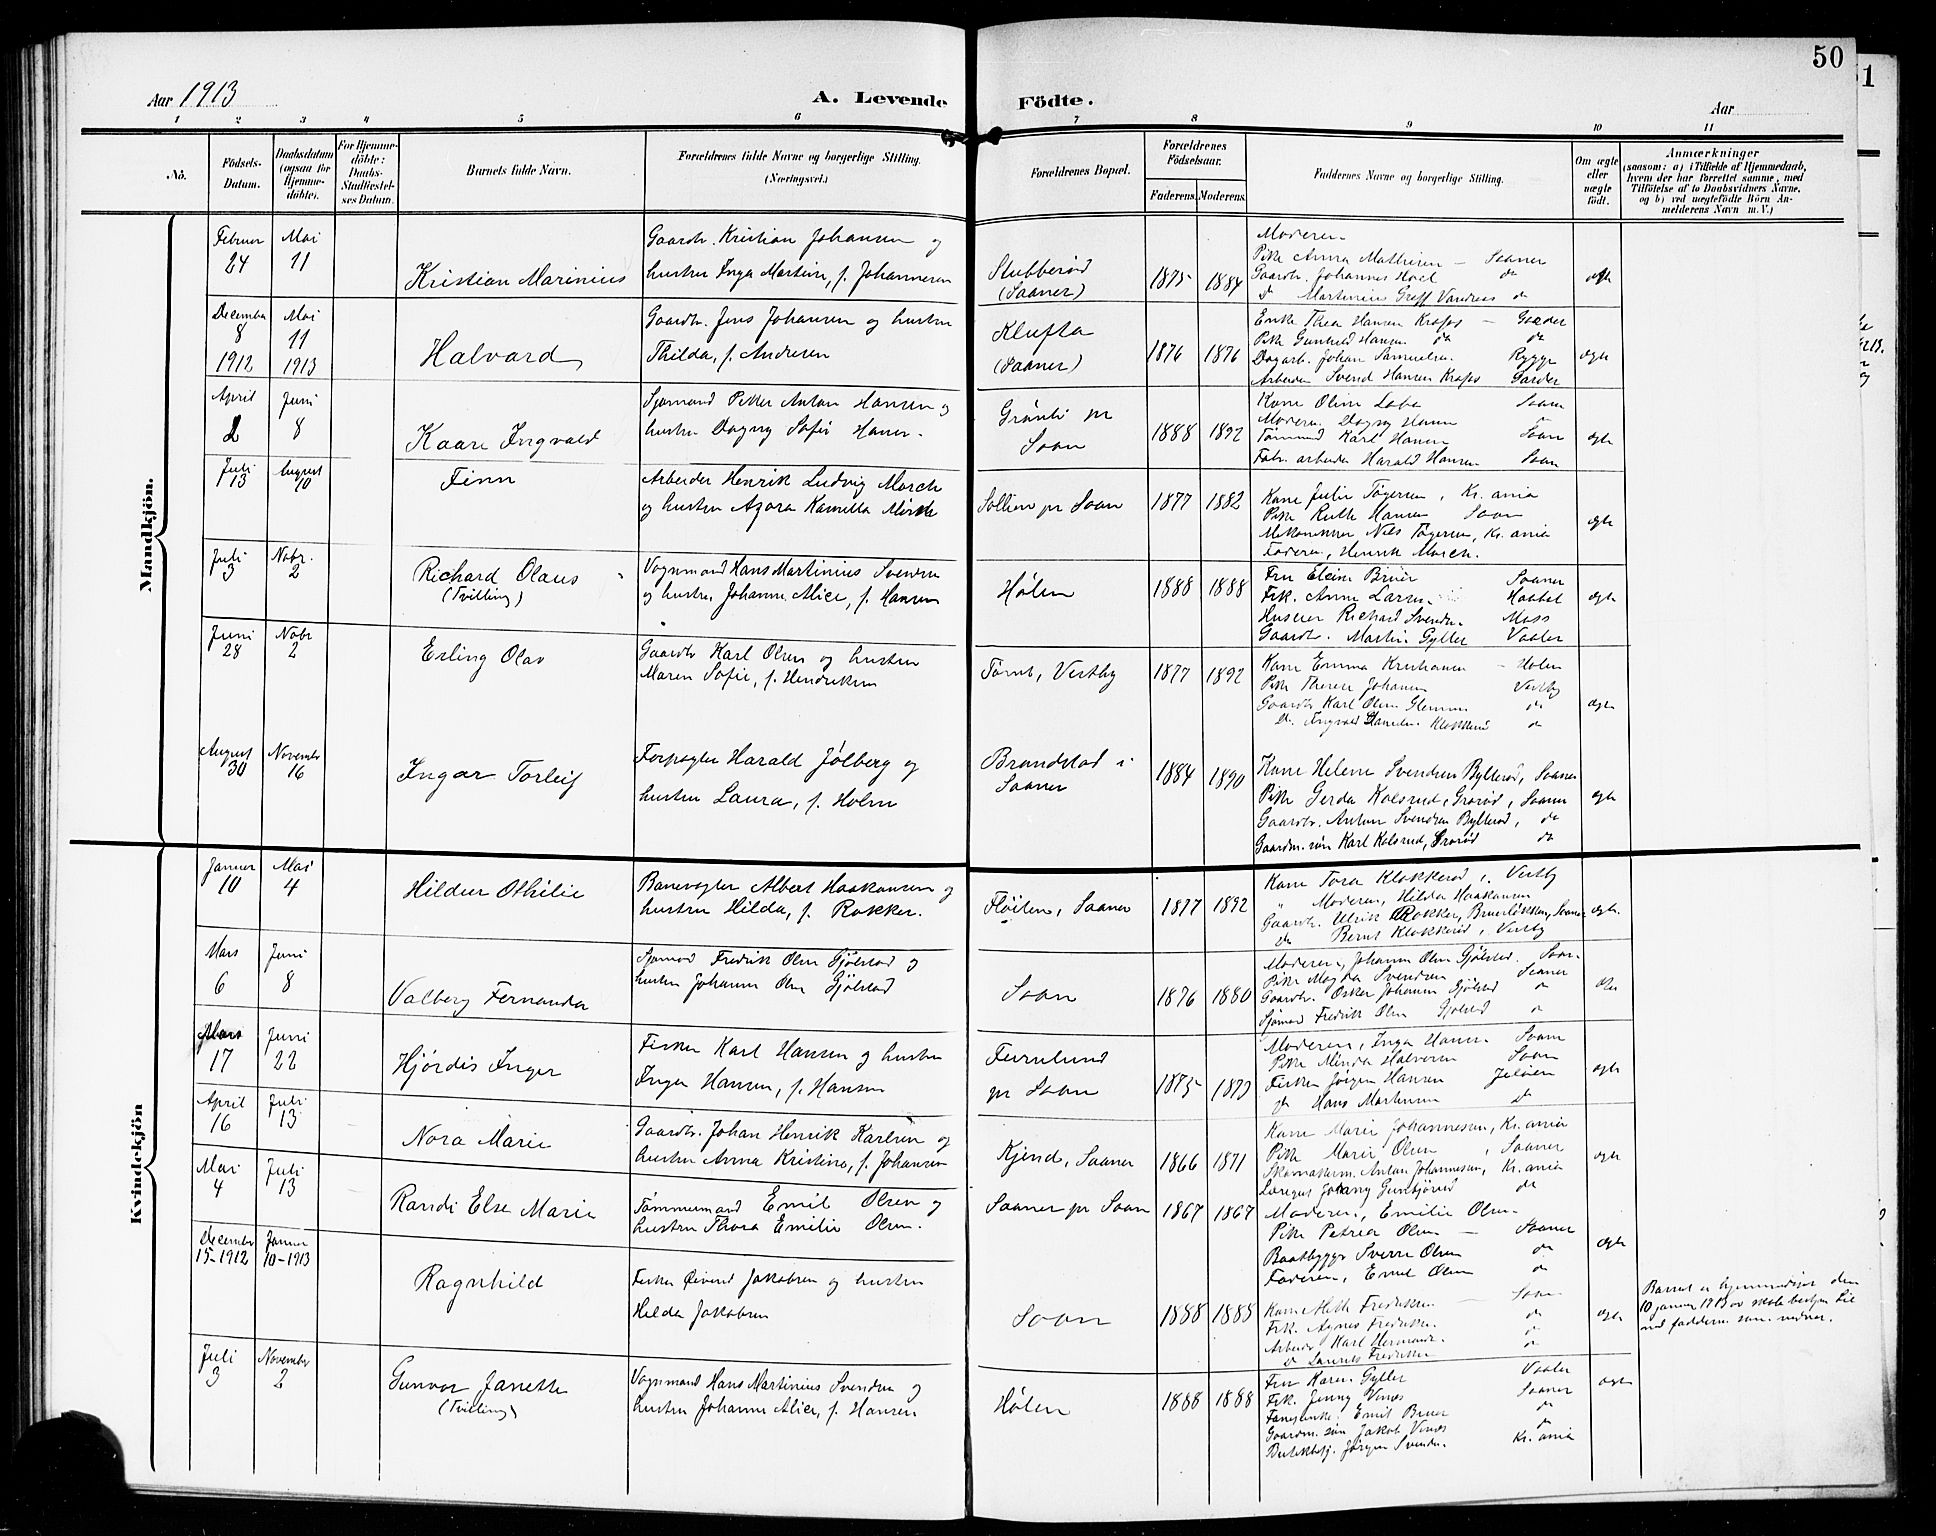 50
Aar 1913
A. Levende Födte.
Aar
1 2 3 4 5 6 7 8 9 10 11
No.
Födsels-Datum.
Daabsdatum (ogsaa for Hjemme-döbte).
For Hjemme-döbte: Daabs-Stadfæstel-ses Datum.
Barnets fulde Navn.
Forældrenes fulde Navne og borgerlige Stilling.
(Næringsvei.)
Forældrenes Bopæl.
Forældrenes Födselsaar.
Faderens. Moderens.
Faddernes Navne og borgerlige Stilling.
Om ægte eller uægte födt.
Anmærkninger
(saasom: a) i Tilfælde af Hjemmedaab,
hvem der har forrettet samme, med
Tilföielse af to Daabsvidners Navne,
og b) ved uægtefödte Börn An-
melderens Navn m. V.)
Mandkjön.
Februar 24
Mai 11
Kristian Marinius
Gaardbr. Kristian Johansen og
hustru Inga Martine, f. Johannesen
Stubberød
(Saaner)
1875 1884
Moderen
Pike Anna Mathisen — Saaner
Gaardbr. Johannes Hoel do
Do Martinius Greff Vandres do
ægte
December 8 1912
Mai 11 1913
Halvard
Gaardbr. Jens Johansen og hustru
Thilda, f. Andresen
Klufta
(Saaner)
1876 1876
Enke Thea Hansen Krafos — Garder
Pike Gunhild Hansen do do
Dagarb. Johan Samuelsen Rygge
Arbeider Svend Hansen Krafos Garder
ægte
April 2
Juni 8
Kaare Ingvald
Sjømand Petter Anton Hansen og
hustru Dagny Sofie Hansen
Grønli pr
Soon
1888 1892
Kone Oline Soon
Moderen Dagny Hansen do
Tømmermd Karl Hansen Soon
Fabr. arbeider Harald Hansen Soon
ægte
Juli 13
August 10
Finn
Arbeider Henrik Ludvig Morch
og hustru Azora Kamilla Mörch
Sollien pr Soon
1877 1882
Kone Julie Tøgersen, Kr.ania
Pike Ruth Hansen Soon
Mekaniker Nils Tøgersen, Kr.ania
Faderen, Henrik Morch.
ægte
Juli 3
Nobr. 2
Richard Olaus
(Tvilling)
Vognmand Hans Martinius Svendsen
og hustru Johanne Alice, f. Hansen
Hølen
1888 1888
Fru Elvine Bruer Saaner
Frk. Anne Larsen Haabøl
Huseier Richard Svendsen Moss
Gaardbr. Martin Gyller Vaaler
ægte
Juni 28
Nobr 2
Erling Olav
Gaardbr Karl Olsen og hustru
Maren Sofie, f. Hendriksen
Tømt, Vestby
1877 1892
Kone Emma Kristiansen — Hølen
Pike Therese Johansen Vestby
Gaardbr Karl Olsen Glemmen do
D. Ingvald Danielsen Klokkerud do
ægte
August 30
November 16
Ingar Torleif
Forpagter Harald Jølberg og
hustru Laura, f. Holm
Brandstad i
Saaner
1884 1890
Kone Helene Svendsen Byllerød, Saaner
Pike Gerda Kolsrud, Grorød, Saaner
Gaardbr. Anton Svendsen Byllerød, do
Gaardm. søn Karl Kolsrud, Grorød do
ægte
Kvindekjön
Januar 10
Mai 4
Hildur Othilie
Banevogter Albert Haakonsen og
hustru Hilda, f. Rokker.
Fløiten, Saaner
1877 1892
Kone Tora Klokkerud, Vestby
" Moderen, Hilda Haakonsen
Gaardbr. Ulrik Rokker, Bruerløkken, Saaner
do Bernt Klokkerud, Vestby
ægte.
Mars 6
Juni 8
Valberg Fernanda
Sjømd Fredrik Olsen Gjølstad og
hustru Johanne Olsen Gjølstad
Soon
1876 1880
Moderen, Johanne Olsen Gjølstad. Soon.
Pike Magda Svendsen Saaner
Gaardbr. Oskar Johansen Gjølstad do
Sjømd Fredrik Olsen Gjølstad do
Mars 17
Juni 22
Hjørdis Inger
Fisker Karl Hansen og hustru
Inga Hansen, f. Hansen
Furulund
pr Soon
1875 1879
Moderen, Inga Hansen Soon
Pike Minda Halvorsen Soon
Fisker Jørgen Hansen Jeløien
do Hans Martinsen do
ægte
April 16
Juli 13
Nora Marie
Gaardbr. Johan Henrik Karlsen og
hustru Anna Kristine, f. Johansen
Kjend, Saaner
1866 1871
Kone Marie Johannesen, Kr.ania
Pike Marie Olsen, Saaner
Skomakerm. Anton Johannesen, Kr.ania
ægte
Mai 4
Juli 13
Randi Else Marie
Tømmermand Emil Olsen og
hustru Thora Emilie Olsen.
Saaner pr Soon
1867 1867
Moderen, Emilie Olsen
Pike Petrea Olsen — Saaner
Baatbygger Sverre Olsen do
Faderen, Emil Olsen do
ægte
December 15-1912
Januar 10-1913
Ragnhild
Fisker Øivind Jakobsen og hustru
Hilda Jakobsen
Soon
1888 1888
Kone Fredriksen — Soon
Frk. Agnes Fredriksen. do
Arbeider Karl Hermansen. do
D Laurits Fredriksen do
ægte
Barnet er hjemmedøpt den
10 januar 1913 av skolebestyrer Lie
med fadderne som vidner.
Juli 3
November 2
Gunvor Janette
(Tvilling)
Vognmand Hans Martinius Svendsen og
hustru Johanne Alice, f. Hansen
Hølen
1888 1888
Fru Karen Gyller Vaaler
Frk. Jenny Vinæs Saaner
Emil Bruer do
Gaardm. søn Jakob Vinæs do
Butikbetj. Jørgen Svendsen Kr.ania
ægte